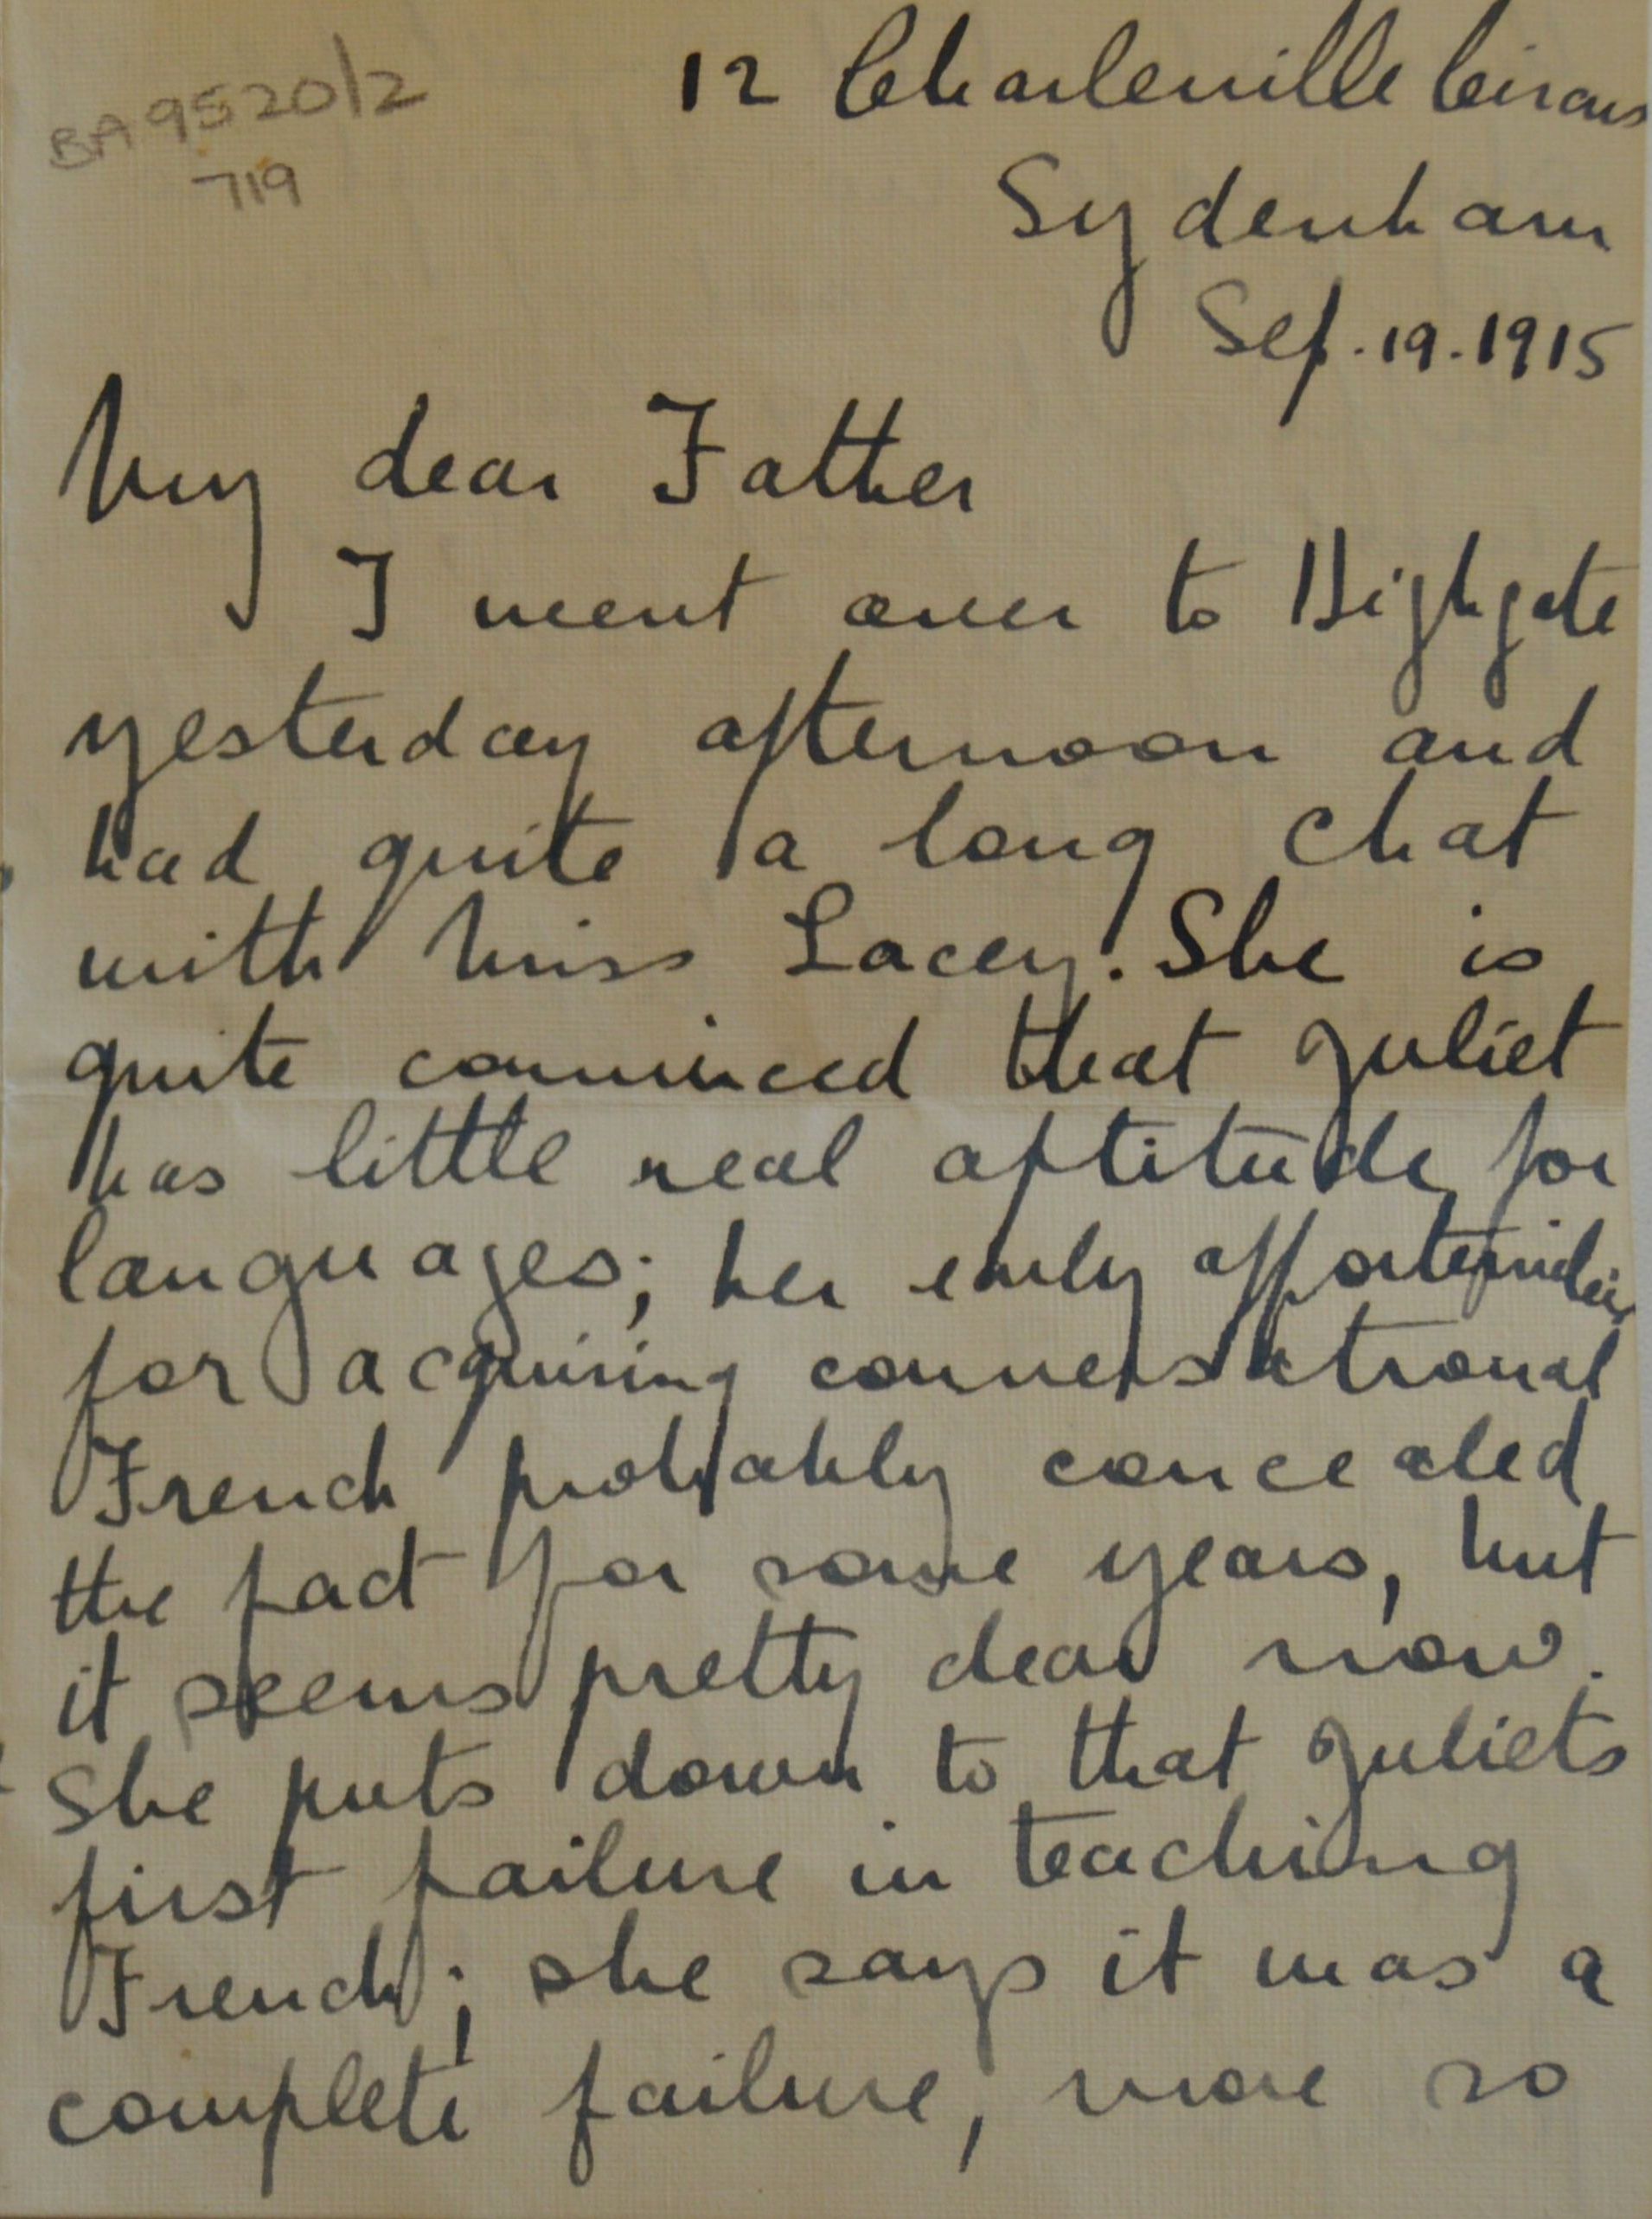 BA 9520/2
719
12 Charleville Circus
Sydenham
Sep. 19. 1915
My dear Father
I went over to Highgate
yesterday afternoon and
had quite a long chat
with Miss Lacey. She is
quite convinced that Juliet
has little real aptitude for
languages; her early opportunities
for acquiring conversational
French probably concealed
the fact for some years, but
it seems pretty clear now.
She puts down to that Juliets
first failure in teaching
French; she says it was a
complete failure, more so